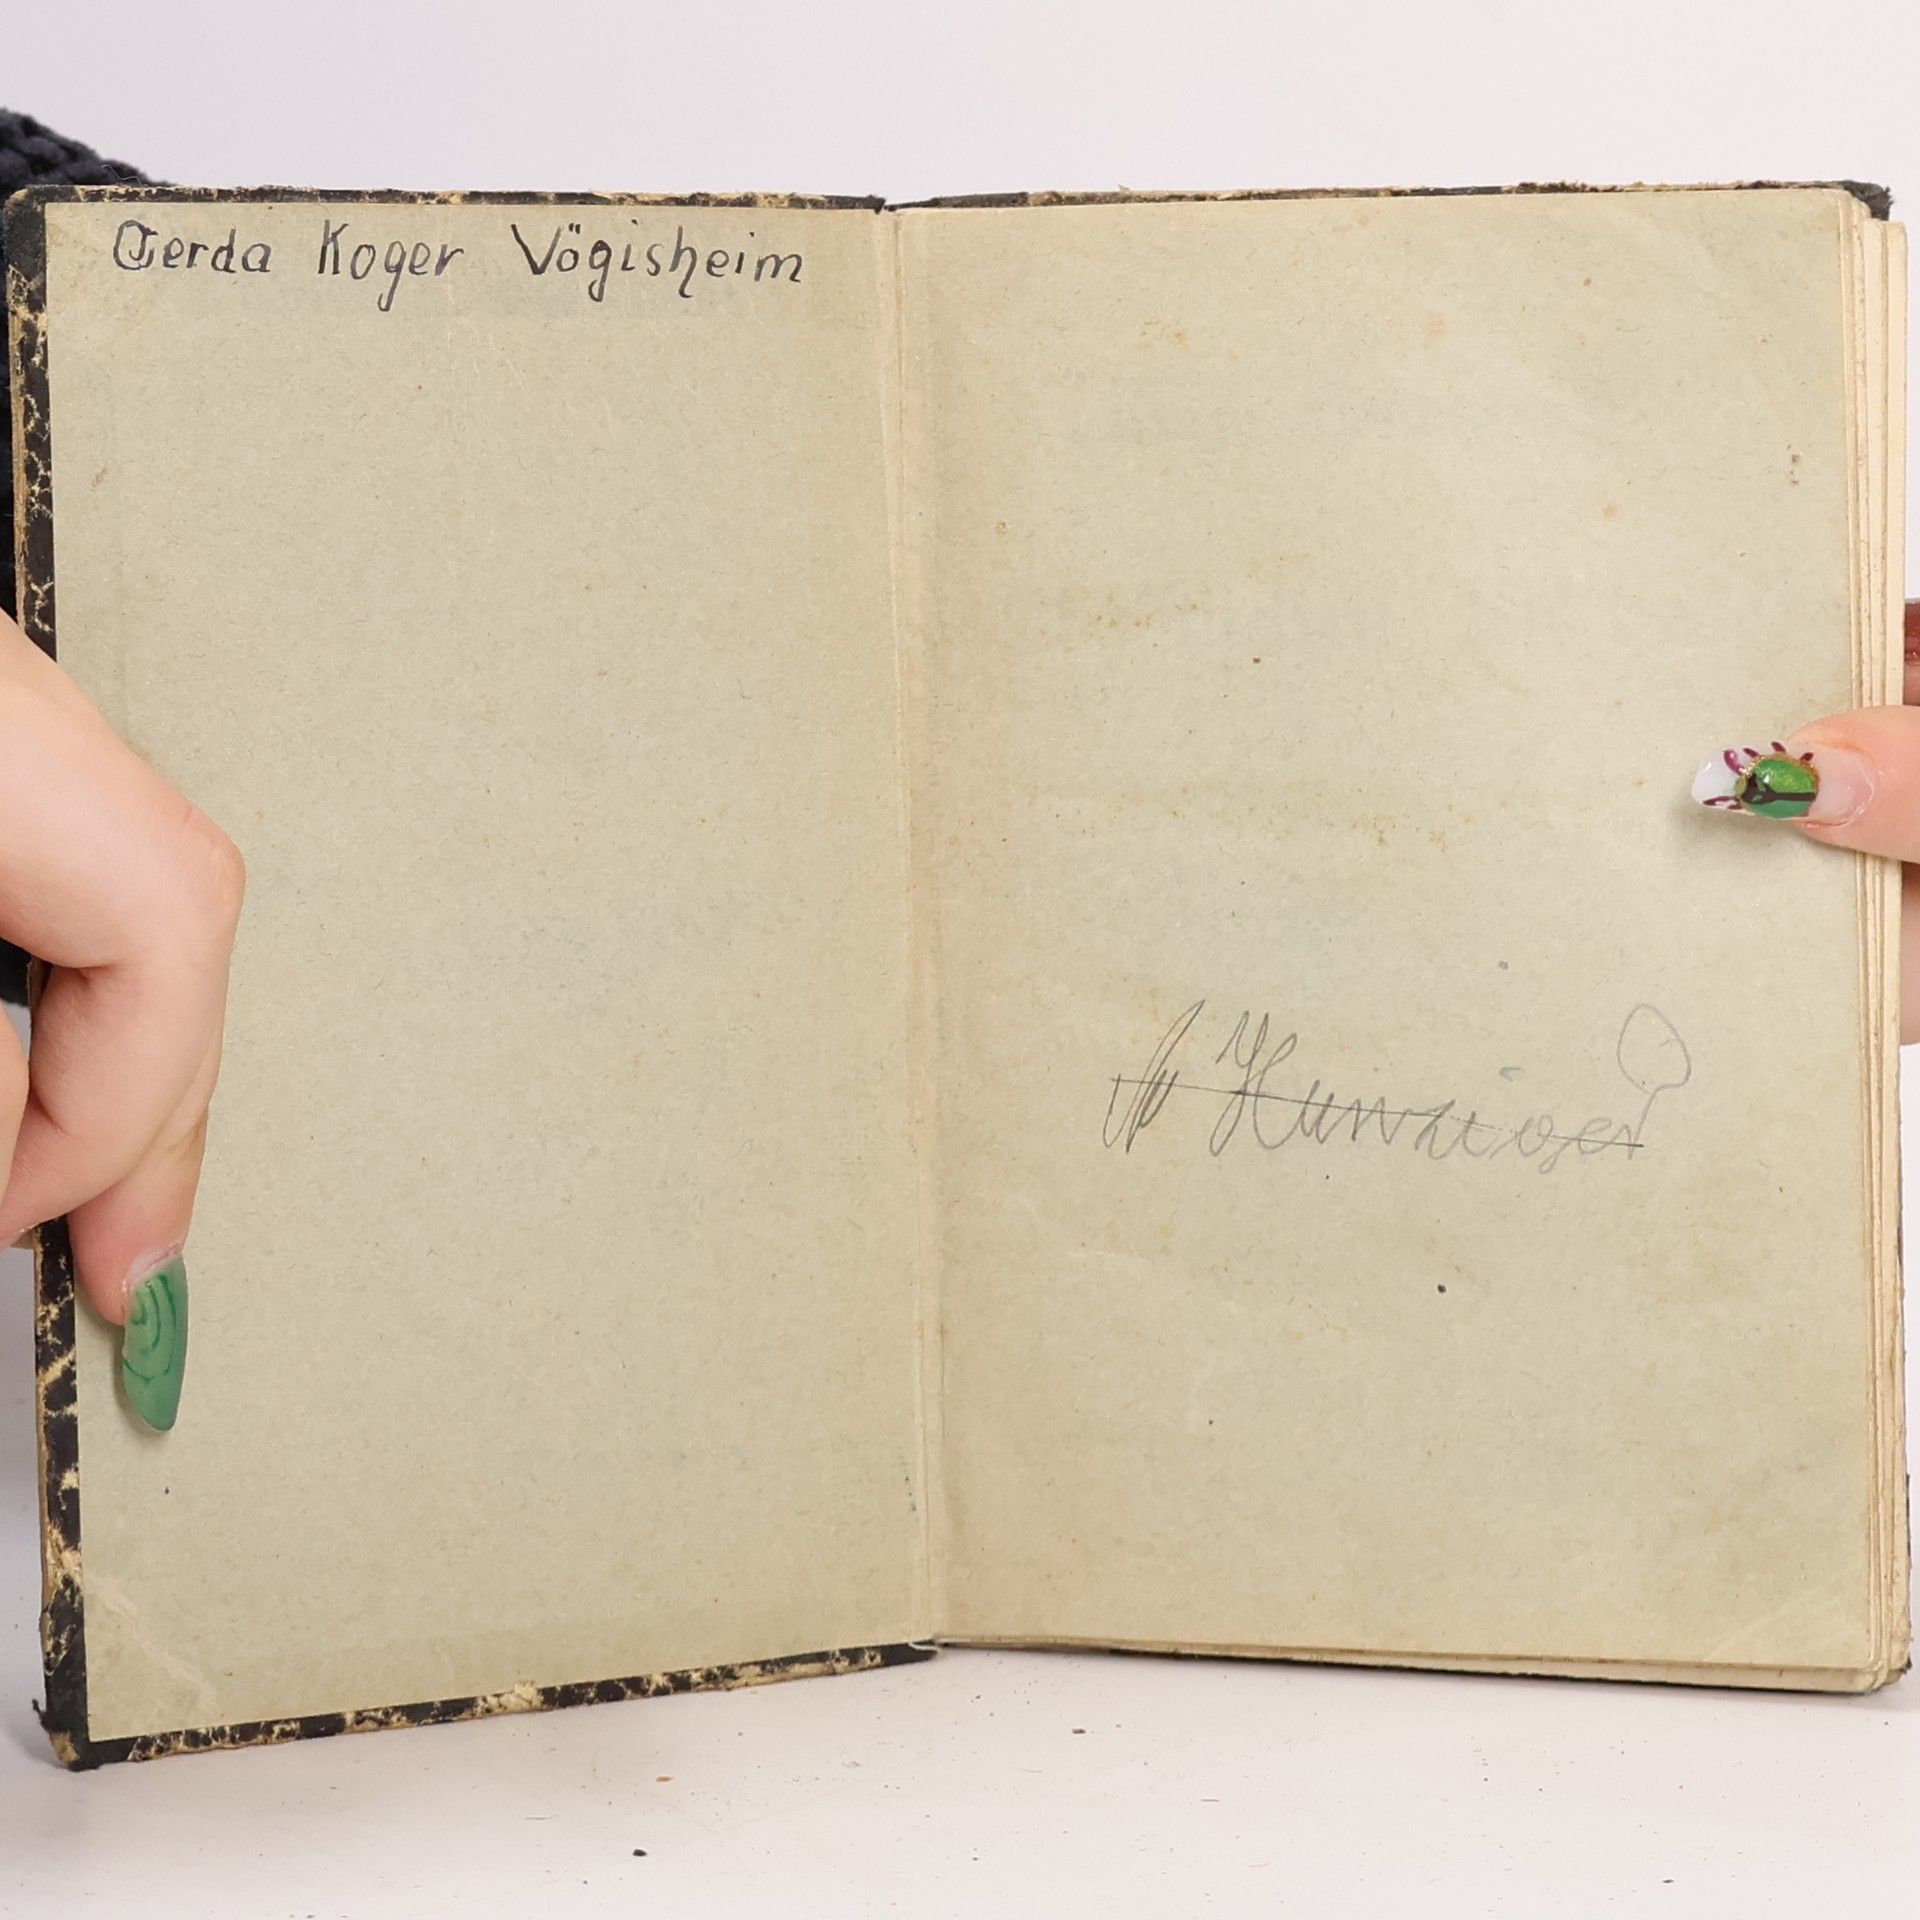 Gerda Koger Vögisheim
Hunziger